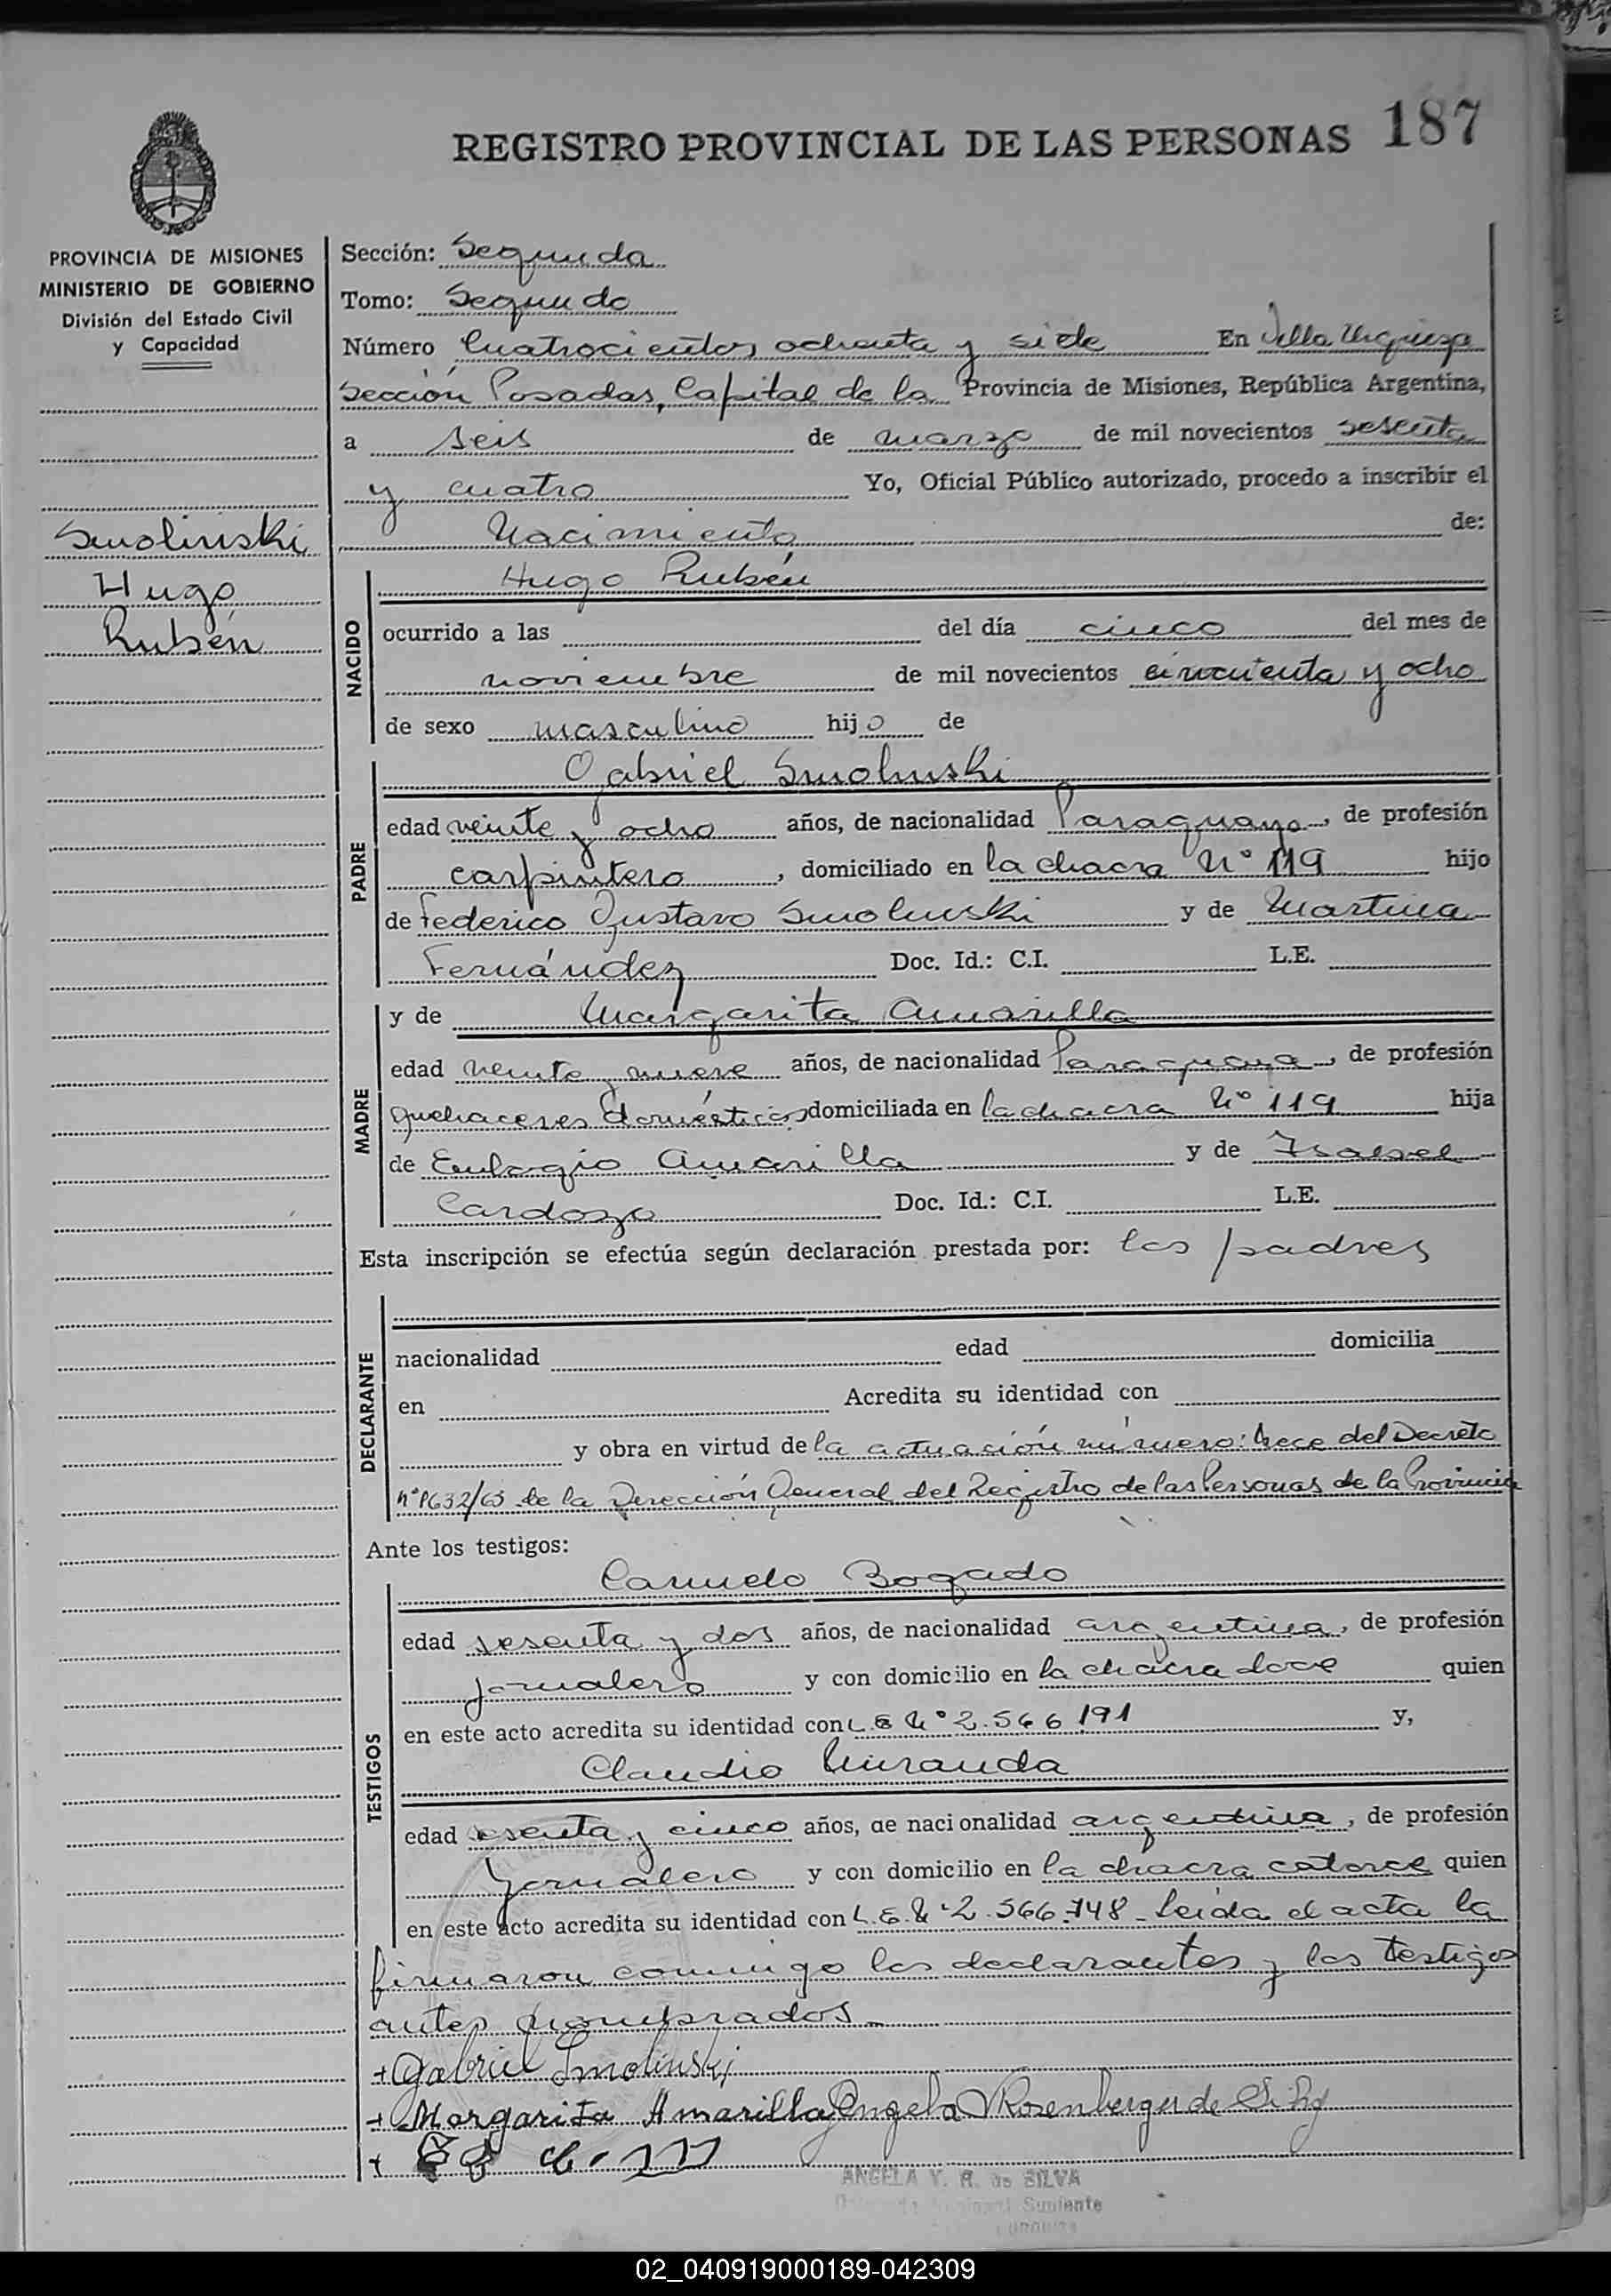 REGISTRO PROVINCIAL DE LAS PERSONAS 187
PROVINCIA DE MISIONES
MINISTERIO DE GOBIERNO
División del Estado Civil
y Capacidad
Smolinski
Hugo
Rubén
Sección: Segunda
Tomo: Segundo
Número Cuatrocientos ochenta y siete En Villa Urquiza
Sección Posadas, Capital de la Provincia de Misiones, República Argentina,
a seis de marzo de mil novecientos sesenta
y cuatro Yo, Oficial Público autorizado, procedo a inscribir el
Nacimiento de:
NACIDO
Hugo Rubén
ocurrido a las del día cinco del mes de
noviembre de mil novecientos cincuenta y ocho
de sexo masculino hijo de
PADRE
Gabriel Smolinski
edad veinte y ocho años, de nacionalidad Paraguayo, de profesión
carpintero, domiciliado en la chacra Nº 119 hijo
de Federico Gustavo Smolinski y de Martina
Fernández Doc. Id.: C.I. L.E.
MADRE
y de Margarita Amarilla
edad veinte y nueve años, de nacionalidad Paraguaya, de profesión
quehaceres domésticos domiciliada en la chacra Nº 119 hija
de Eulogio Amarilla y de Isabel
Cardozo Doc. Id.: C.I. L.E.
Esta inscripción se efectúa según declaración prestada por: los padres
DECLARANTE
nacionalidad edad domicilia
en Acredita su identidad con
y obra en virtud de la actuación número: trece del Decreto
Nº 1632/63 de la Dirección General del Registro de las Personas de la Provincia
Ante los testigos:
TESTIGOS
Carmelo Bogado
edad sesenta y dos años, de nacionalidad argentina, de profesión
jornalero y con domicilio en la chacra doce quien
en este acto acredita su identidad con L.E Nº 2.566.191 y,
Claudio Miranda
edad sesenta y cinco años, de nacionalidad argentina, de profesión
jornalero y con domicilio en la chacra catorce quien
en este acto acredita su identidad con L.E.Nº 2.566.748 - Leida el acta la
firmaron conmigo los declarantes y los testigos
antes nombrados
+ Gabriel Smolinski
+ Margarita Amarilla Angela Rosenberger de Silva
+
ANGELA Y. R. de SILVA
Suplente
02_040919000189-042309